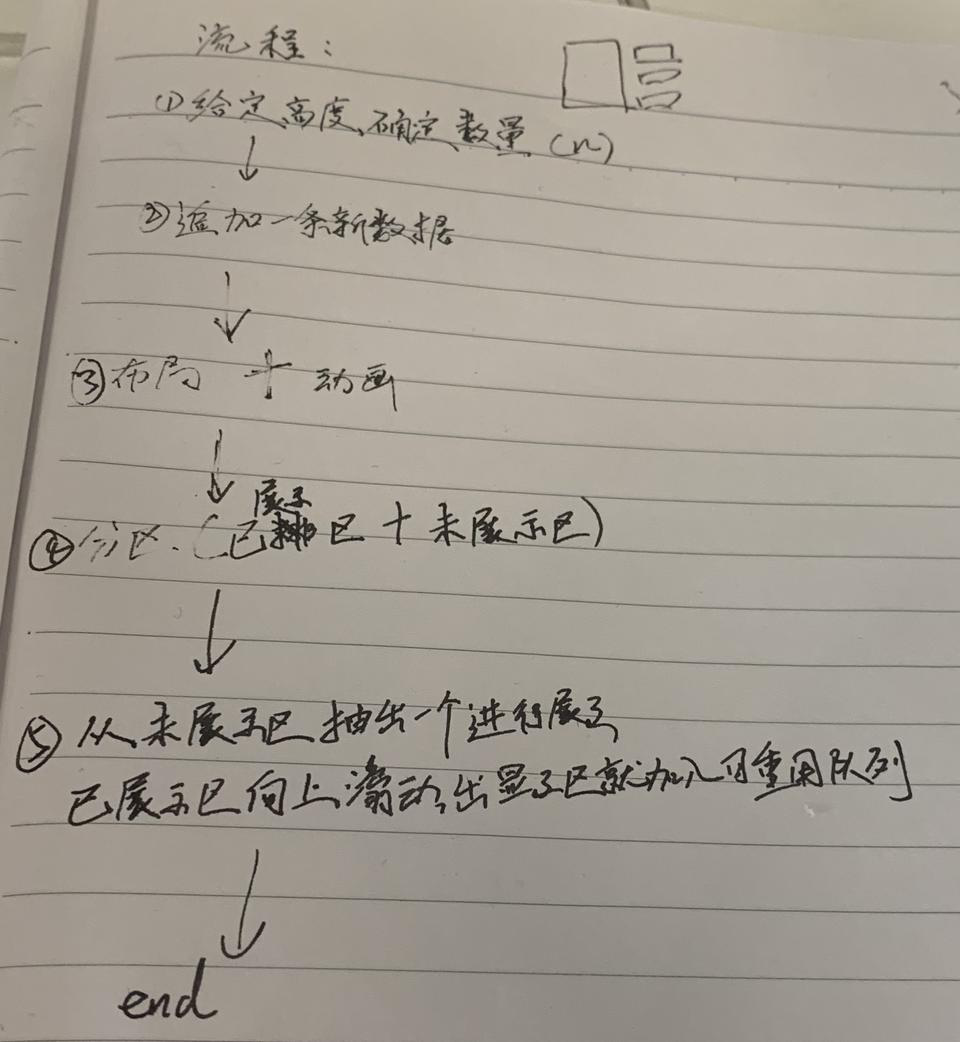 流程：
①给定高度、确定数量（n）
②追加一条新数据
③布局 + 动画
展示
④分区.（已排区 + 未展示区）
⑤从未展示区抽出一个进行展示
已展示区向上滑动,出显示区就加入可重用队列
end